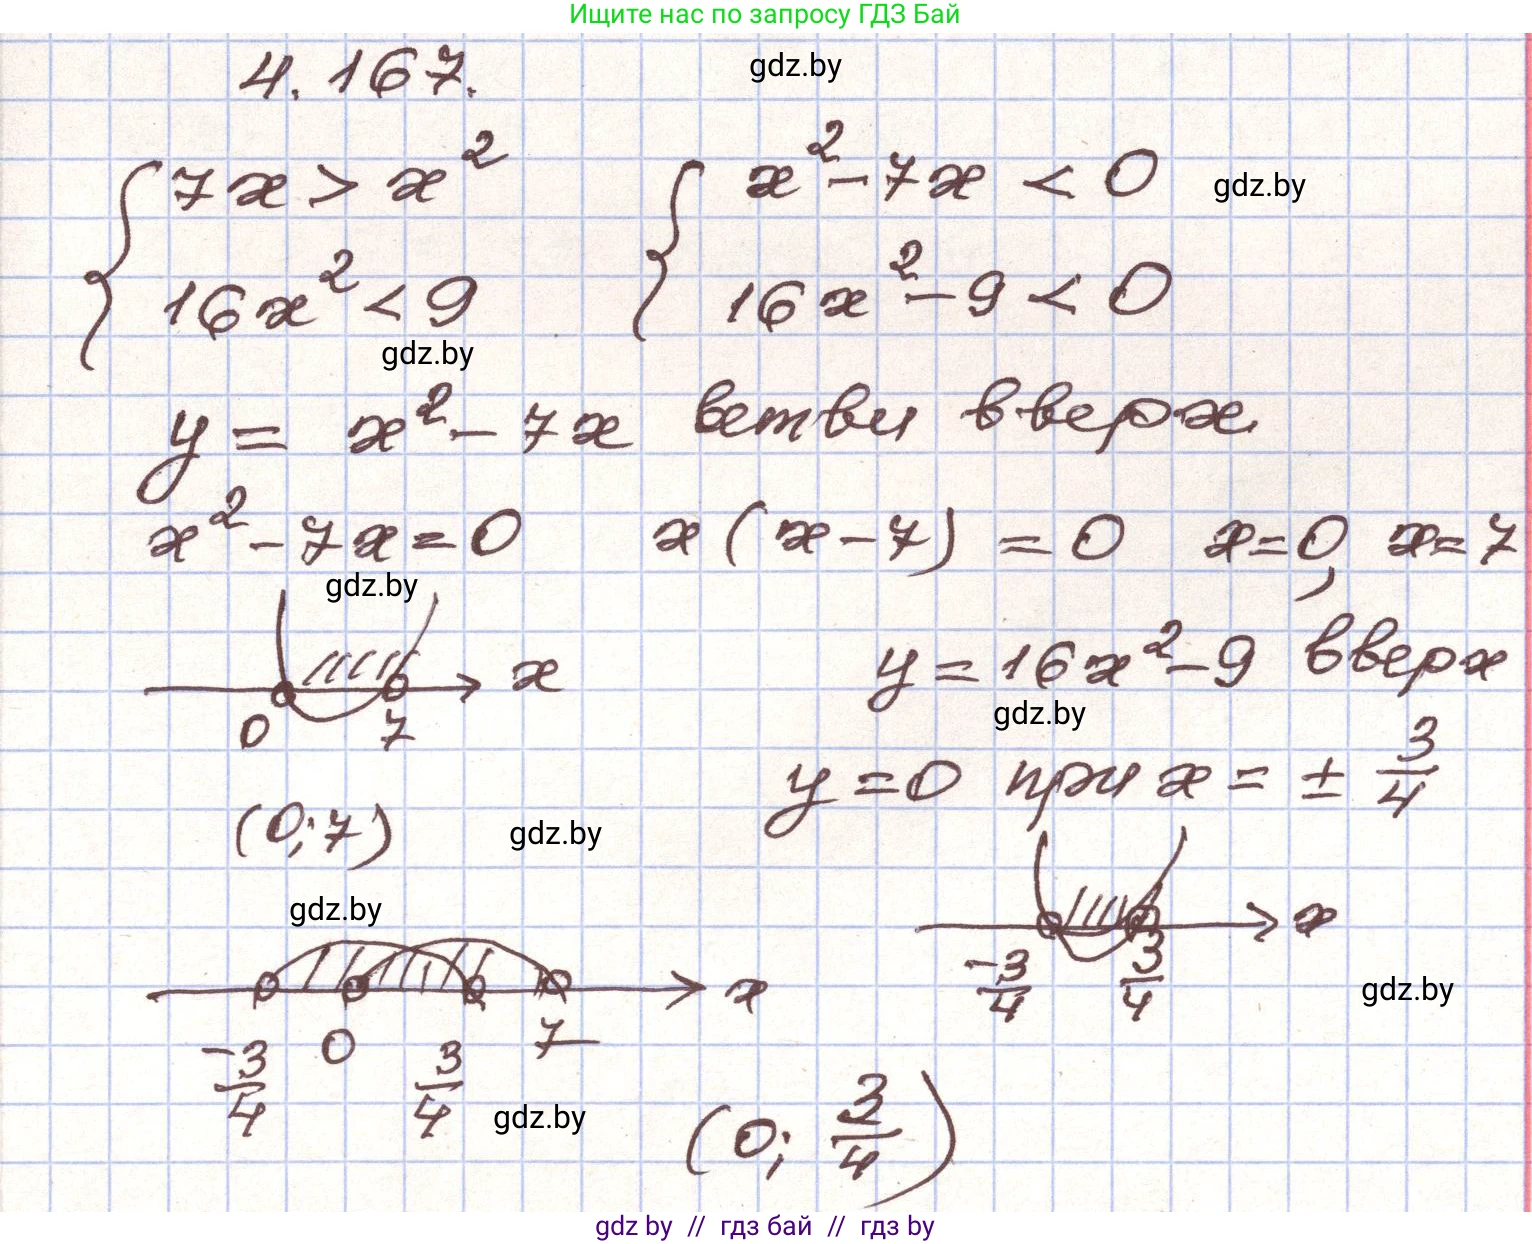 Ищите нас по запросу ГДЗ Бай
4.167.
gdz.by
{ 7x > x²
16x² < 9
{ x² - 7x < 0
16x² - 9 < 0
gdz.by
gdz.by
y = x² - 7x ветви вверх.
x² - 7x = 0 x(x - 7) = 0 x = 0, x = 7
gdz.by
x
0 7
(0; 7)
y = 16x² - 9 вверх
gdz.by
y = 0 при x = ± 3/4
gdz.by
x
-3/4 3/4
gdz.by
gdz.by
x
-3/4 0 3/4 7
gdz.by
(0; 3/4)
gdz by // гдз бай // гдз by